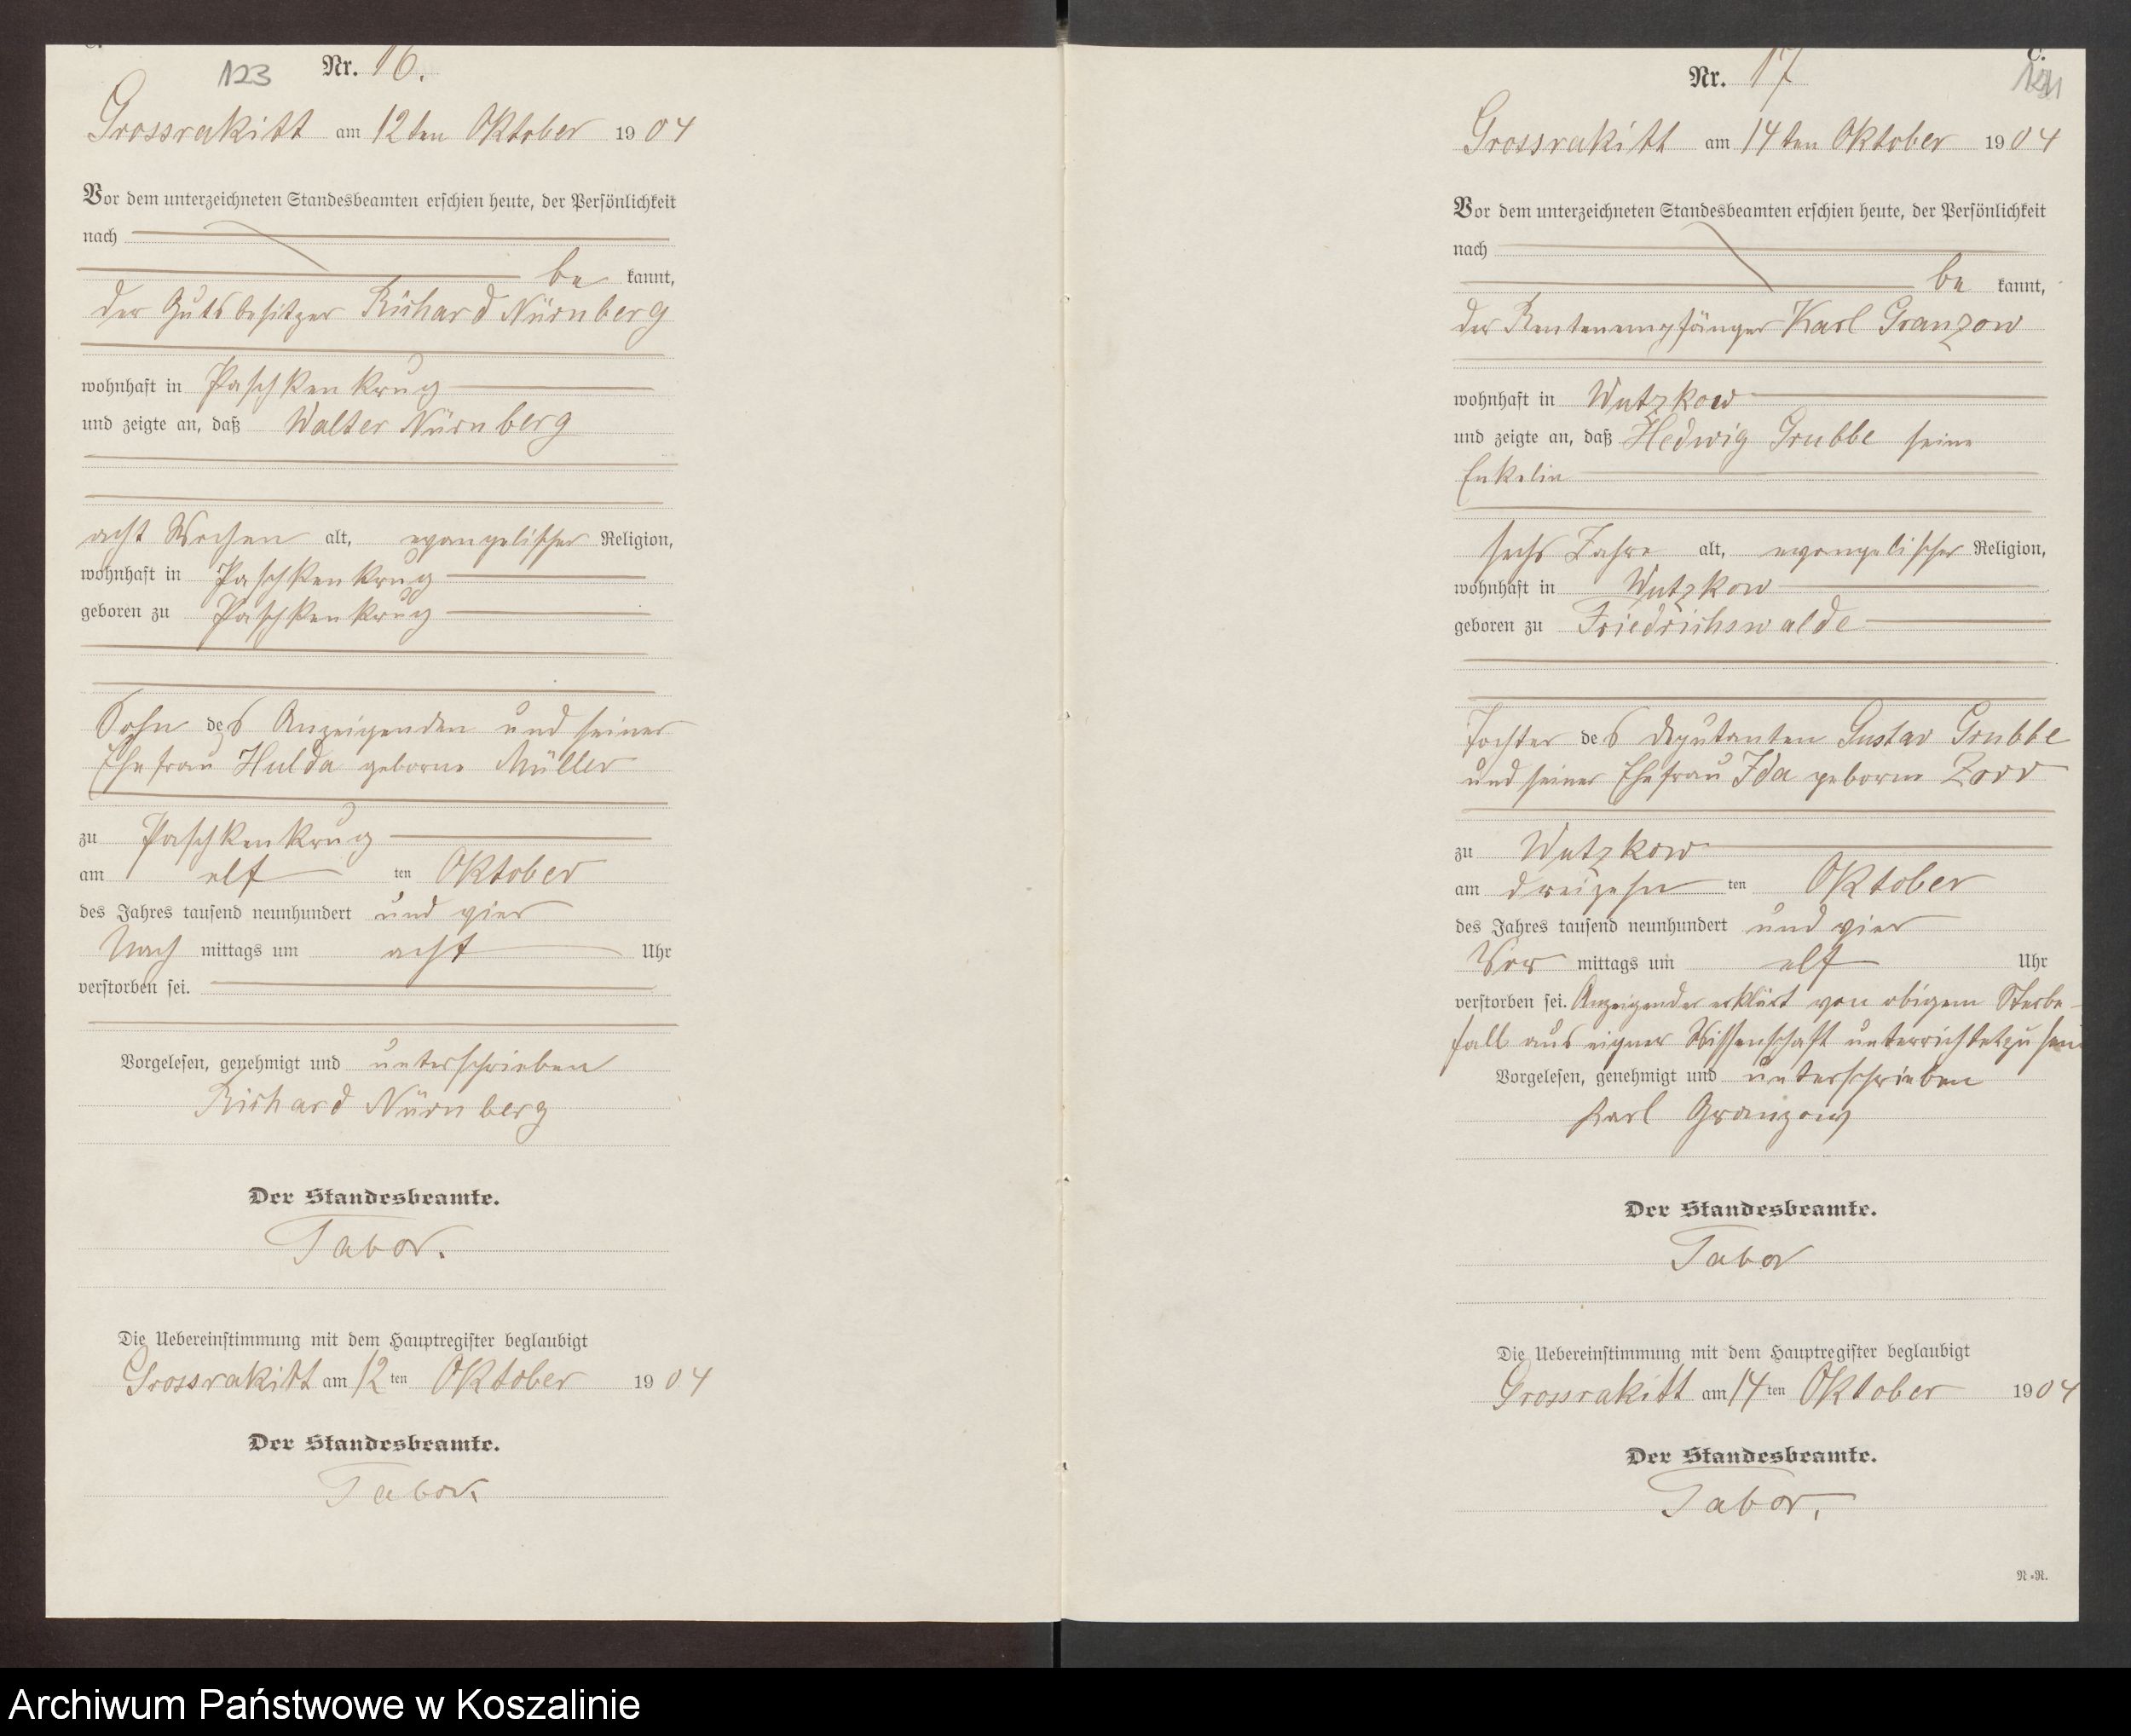 C.
123 Nr. 16.
Grossrakitt am 12ten Oktober 1904
Vor dem unterzeichneten Standesbeamten erschien heute, der Persönlichkeit
nach
be kannt,
der Gutsbesitzer Richard Nürnberg
wohnhaft in Paschkenkrug
und zeigte an, daß Walter Nürnberg
acht Wochen alt, evangelischer Religion,
wohnhaft in Paschkenkrug
geboren zu Paschkenkrug
Sohn des Anzeigenden und seiner
Ehefrau Hulda geborne Müller
zu Paschkenkrug
am elf ten Oktober
des Jahres tausend neunhundert und vier
Nach mittags um acht Uhr
verstorben sei.
Vorgelesen, genehmigt und unterschrieben
Richard Nürnberg
Der Standesbeamte.
Tabor.
Die Uebereinstimmung mit dem Hauptregister beglaubigt
Grossrakitt am 12 ten Oktober 1904
Der Standesbeamte.
Tabor.
C.
Nr. 17
Grossrakitt am 14ten Oktober 1904
Vor dem unterzeichneten Standesbeamten erschien heute, der Persönlichkeit
nach
be kannt,
der Rentenempfänger Karl Granzow
wohnhaft in Wutzkow
und zeigte an, daß Hedwig Grubbe seine
Enkelin
sechs Jahre alt, evangelischer Religion,
wohnhaft in Wutzkow
geboren zu Friedrichswalde
Tochter des Deputanten Gustav Grubbe
und seiner Ehefrau Ida geborne Zorr
zu Wutzkow
am dreizehn ten Oktober
des Jahres tausend neunhundert und vier
Vor mittags um elf Uhr
verstorben sei. Anzeigender erklärt von obigem Sterbe-
fall aus eigner Wissenschaft unterrichtet zu sein
Vorgelesen, genehmigt und unterschrieben
Karl Granzow
Der Standesbeamte.
Tabor
Die Uebereinstimmung mit dem Hauptregister beglaubigt
Grossrakitt am 14 ten Oktober 1904
Der Standesbeamte.
Tabor.
N.=R.
Archiwum Państwowe w Koszalinie